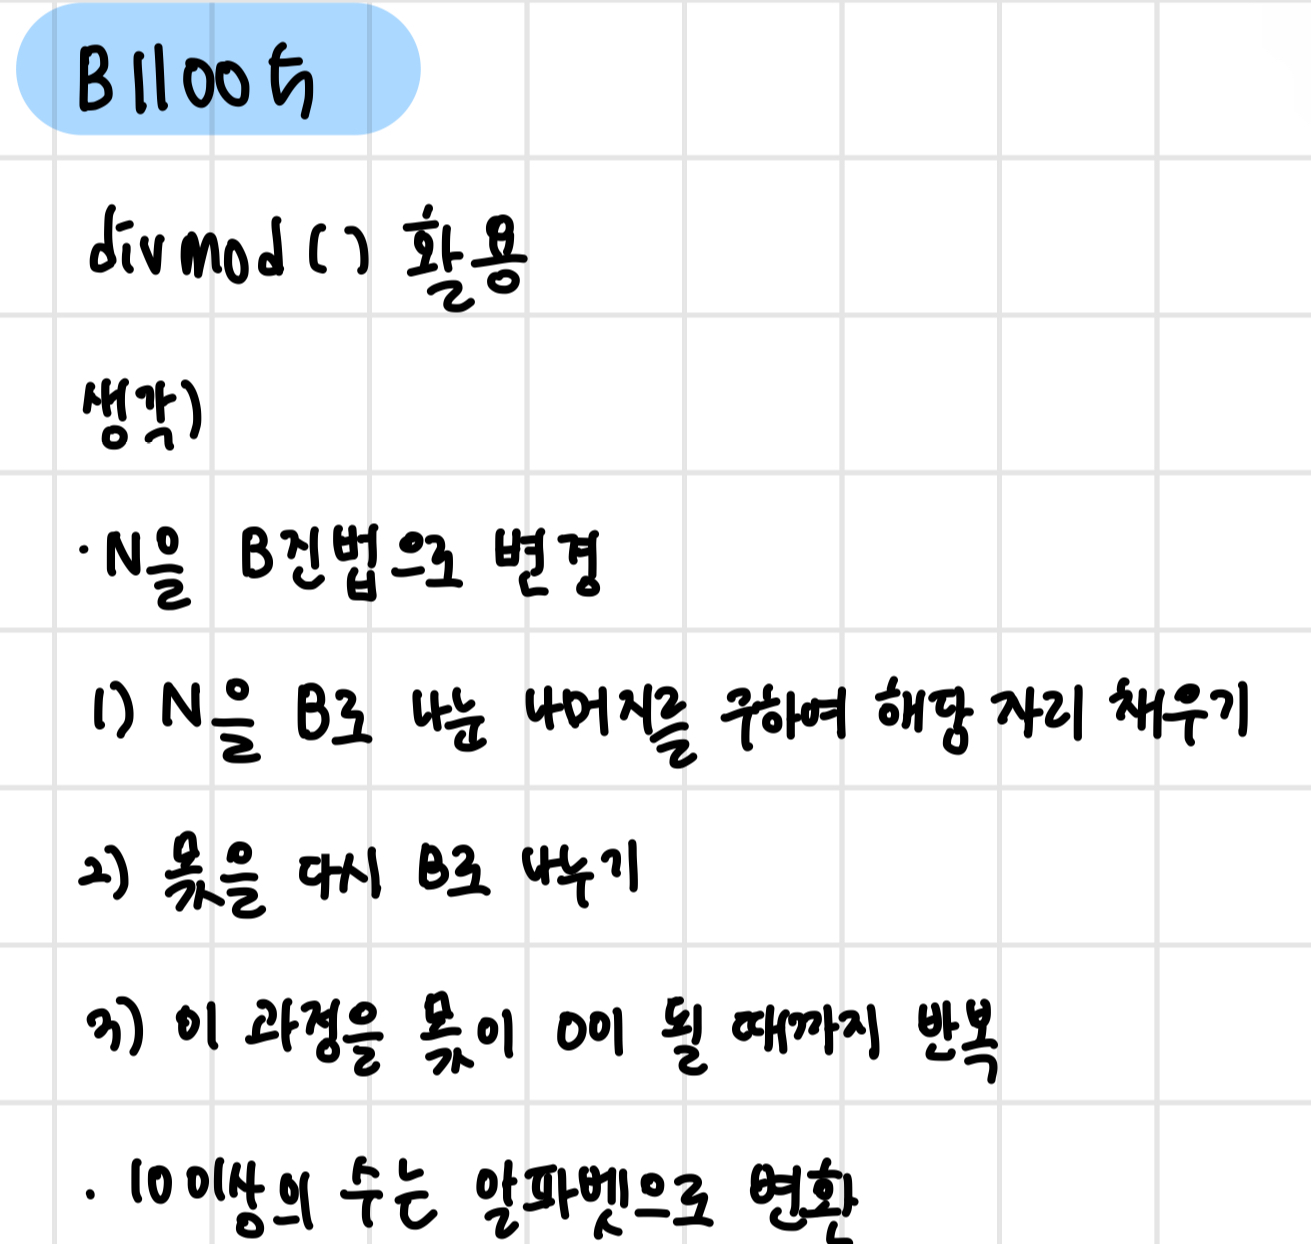 B11005
divmod() 활용
생각)
·N을 B진법으로 변경
1) N을 B로 나눈 나머지를 구하여 해당 자리 채우기
2) 몫을 다시 B로 나누기
3) 이 과정을 몫이 0이 될 때까지 반복
· 10이상의 수는 알파벳으로 변환